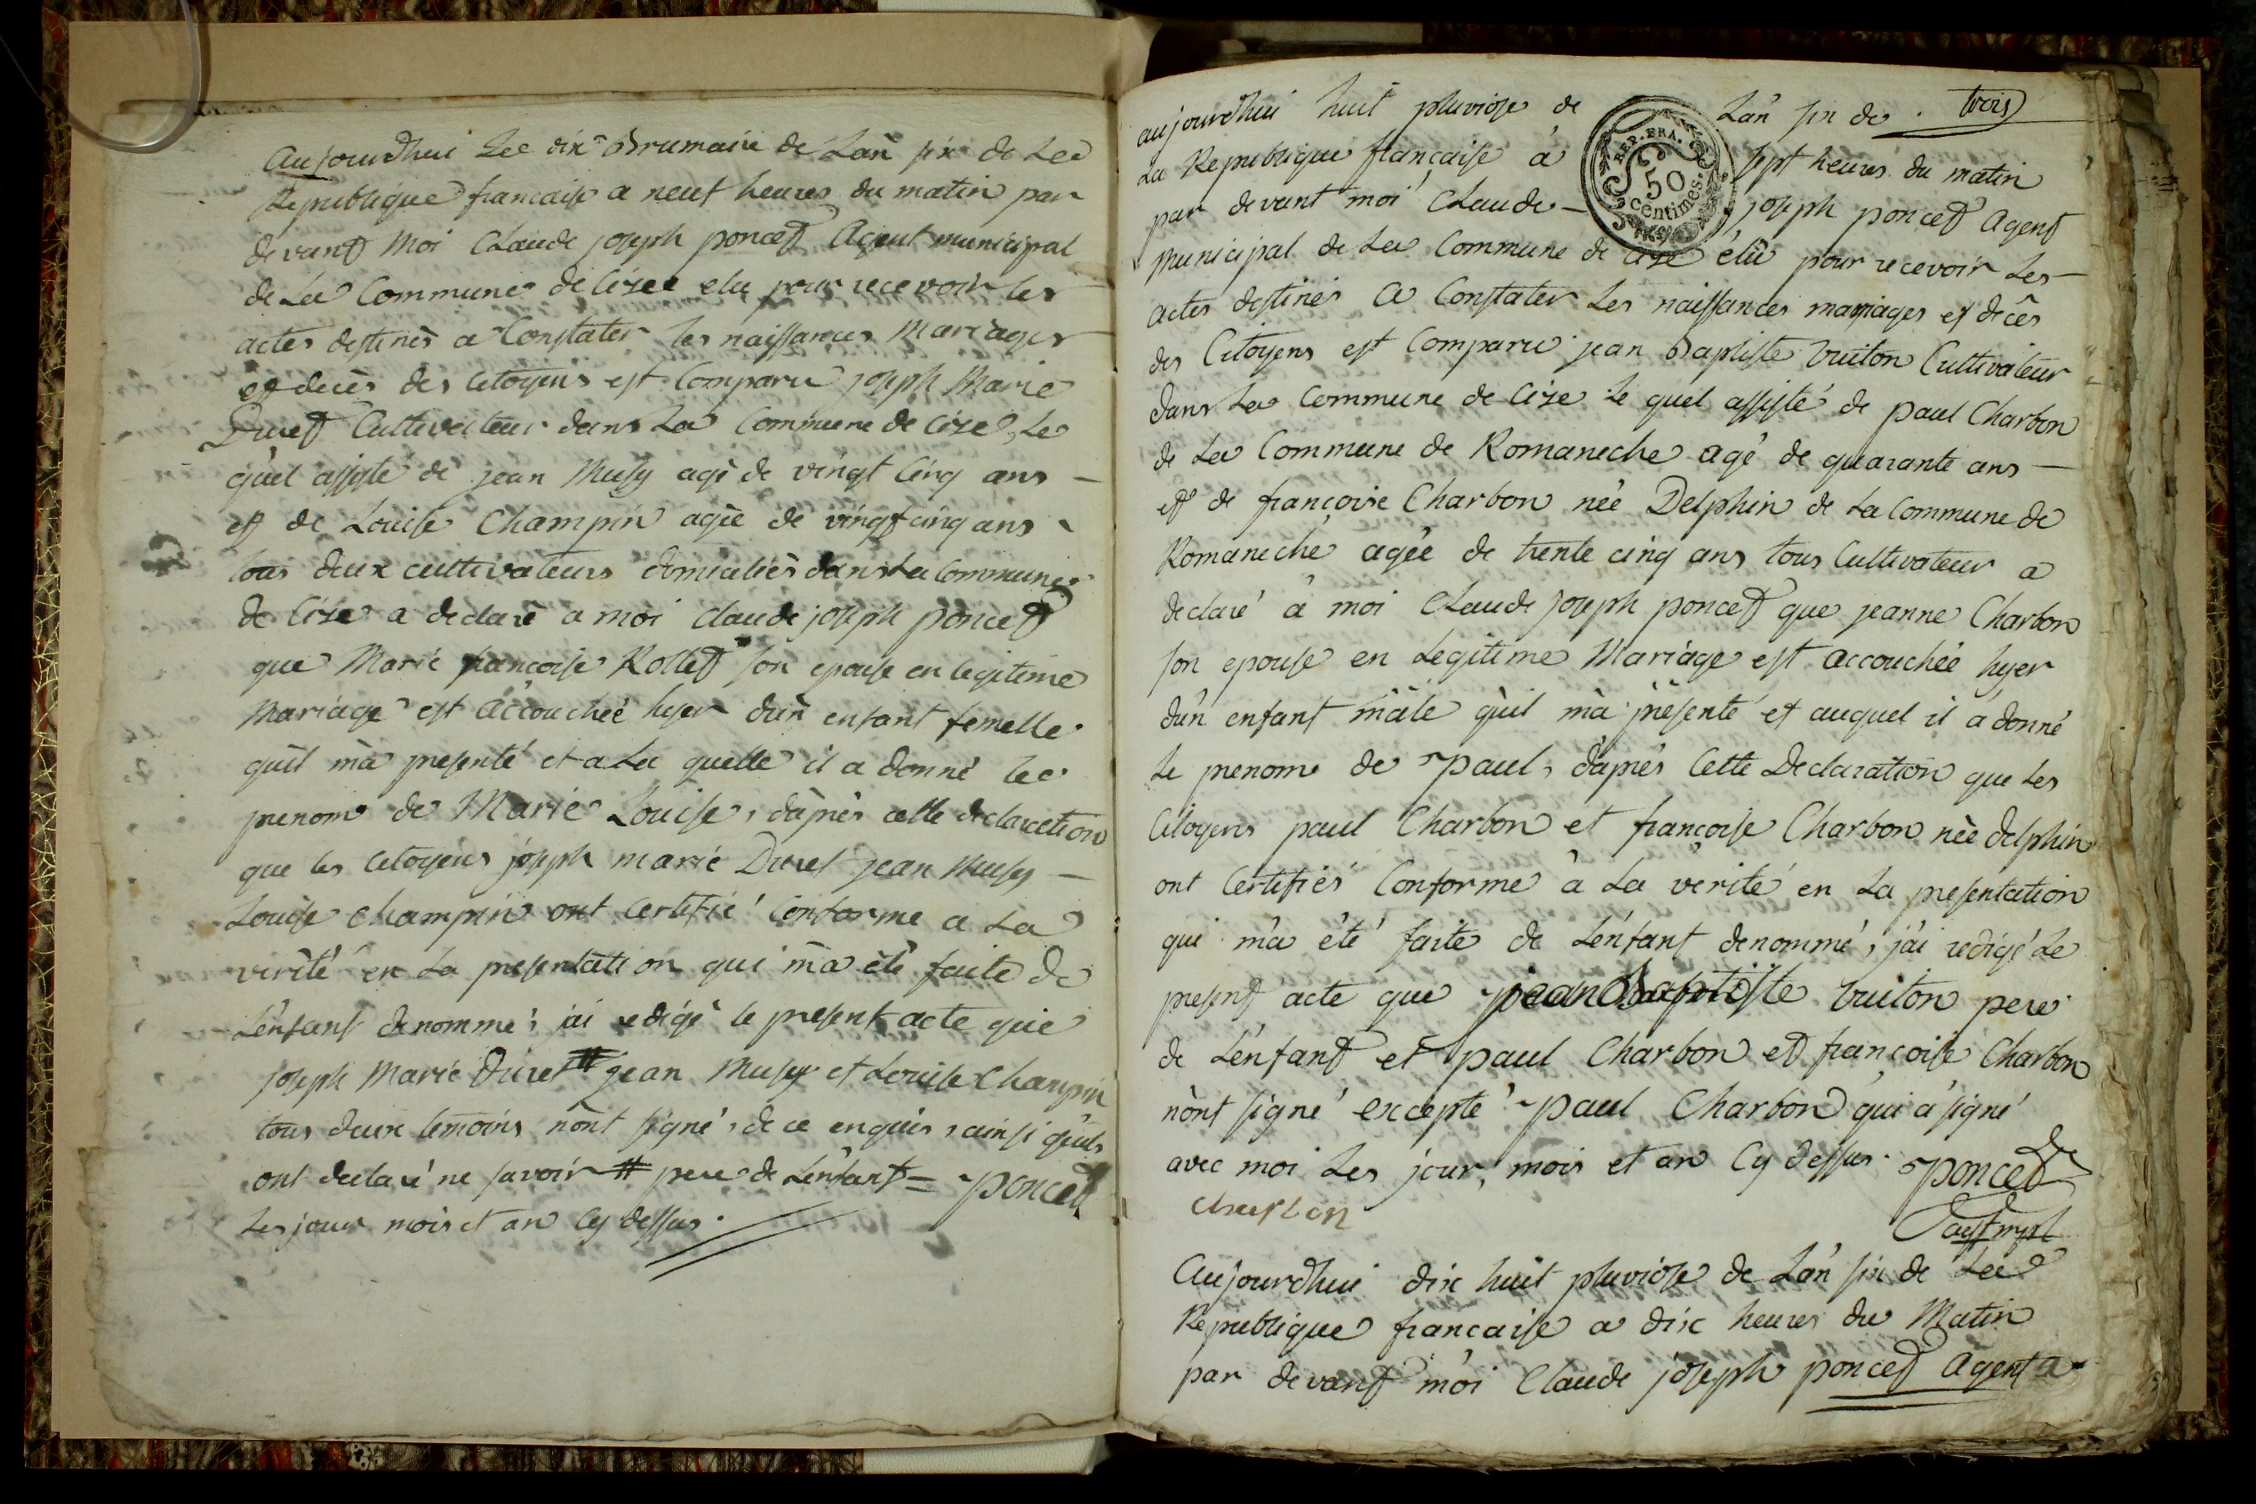 Aujourdhui Le dix Brumaire de Lan six de La
Republique francaise a neuf heures du matin par
devant Moi Claude joseph poncet Agent municipal
de La Commune de Cize elu pour recevoir les
actes destinés a Constater les naissances Mariages
et decès des Citoyens est Comparu joseph Marie
Duret Cultivateur dans La Commune de Cize, Le
quel assisté de jean Musy agé de vingt Cinq ans
et de Louise Champin agée de vingt cinq ans
tous deux cultivateurs domiciliés dans La Commune
de Cize a declaré a moi Claude joseph poncet
que Marie francoise Rollet son epouse en legitime
Mariage est accouchée hyer d'un enfant femelle
qu'il m'a presenté et a La quelle il a donné le
prenom de Marie Louise, d'après cette declaration
que les Citoyens joseph marie Duret jean Musy
Louise Champin ont certifié Conforme a La
verité en La presentation qui m'a été faite de
L'enfant denommé, j'ai redigé le present acte que
joseph Marie Duret # jean Musy et Louise Champin
tous deux temoins n'ont signé, de ce enquis, ainsi qu'ils
ont declaré ne savoir # pere de L'enfant = poncet
Les jour mois et an Cy dessus.
trois
REP. FRA.
50
centimes.
aujourdhui huit pluviose de Lan six de
La Republique française a sept heures du matin
par devant moi Claude joseph poncet Agent
municipal de La Commune de Cize élu pour recevoir Les
actes destinés a Constater Les naissances mariages et décès
des Citoyens est Comparu jean Baptiste Vuiton Cultivateur
dans La Commune de Cize Le quel assisté de paul Charbon
de La Commune de Romaneche agé de quarante ans
et de françoise Charbon née Delphin de La Commune de
Romaneche agée de trente cinq ans tous Cultivateur a
declaré a moi Claude joseph poncet que jeanne Charbon
son epouse en Legitime Mariage est accouchée hyer
d'un enfant mâle qu'il m'a presenté et auquel il a donné
Le prenom de paul, d'après Cette Declaration que Les
Citoyens paul Charbon et françoise Charbon née delphin
ont Certifiés Conforme a La verité en La presentation
qui m'a été faite de L'enfant denommé, j'ai redigé Le
present acte que jean Baptiste Vuiton pere
de L'enfant et paul Charbon et françoise Charbon
n'ont signé excepté paul Charbon qui a signé
avec moi Les jour, mois et an Cy dessus. poncet
Charbon
agt mpl
Aujourdhui dix huit pluviose de Lan six de La
Republique francaise a dix heures du Matin
par devant moi Claude joseph poncet Agent